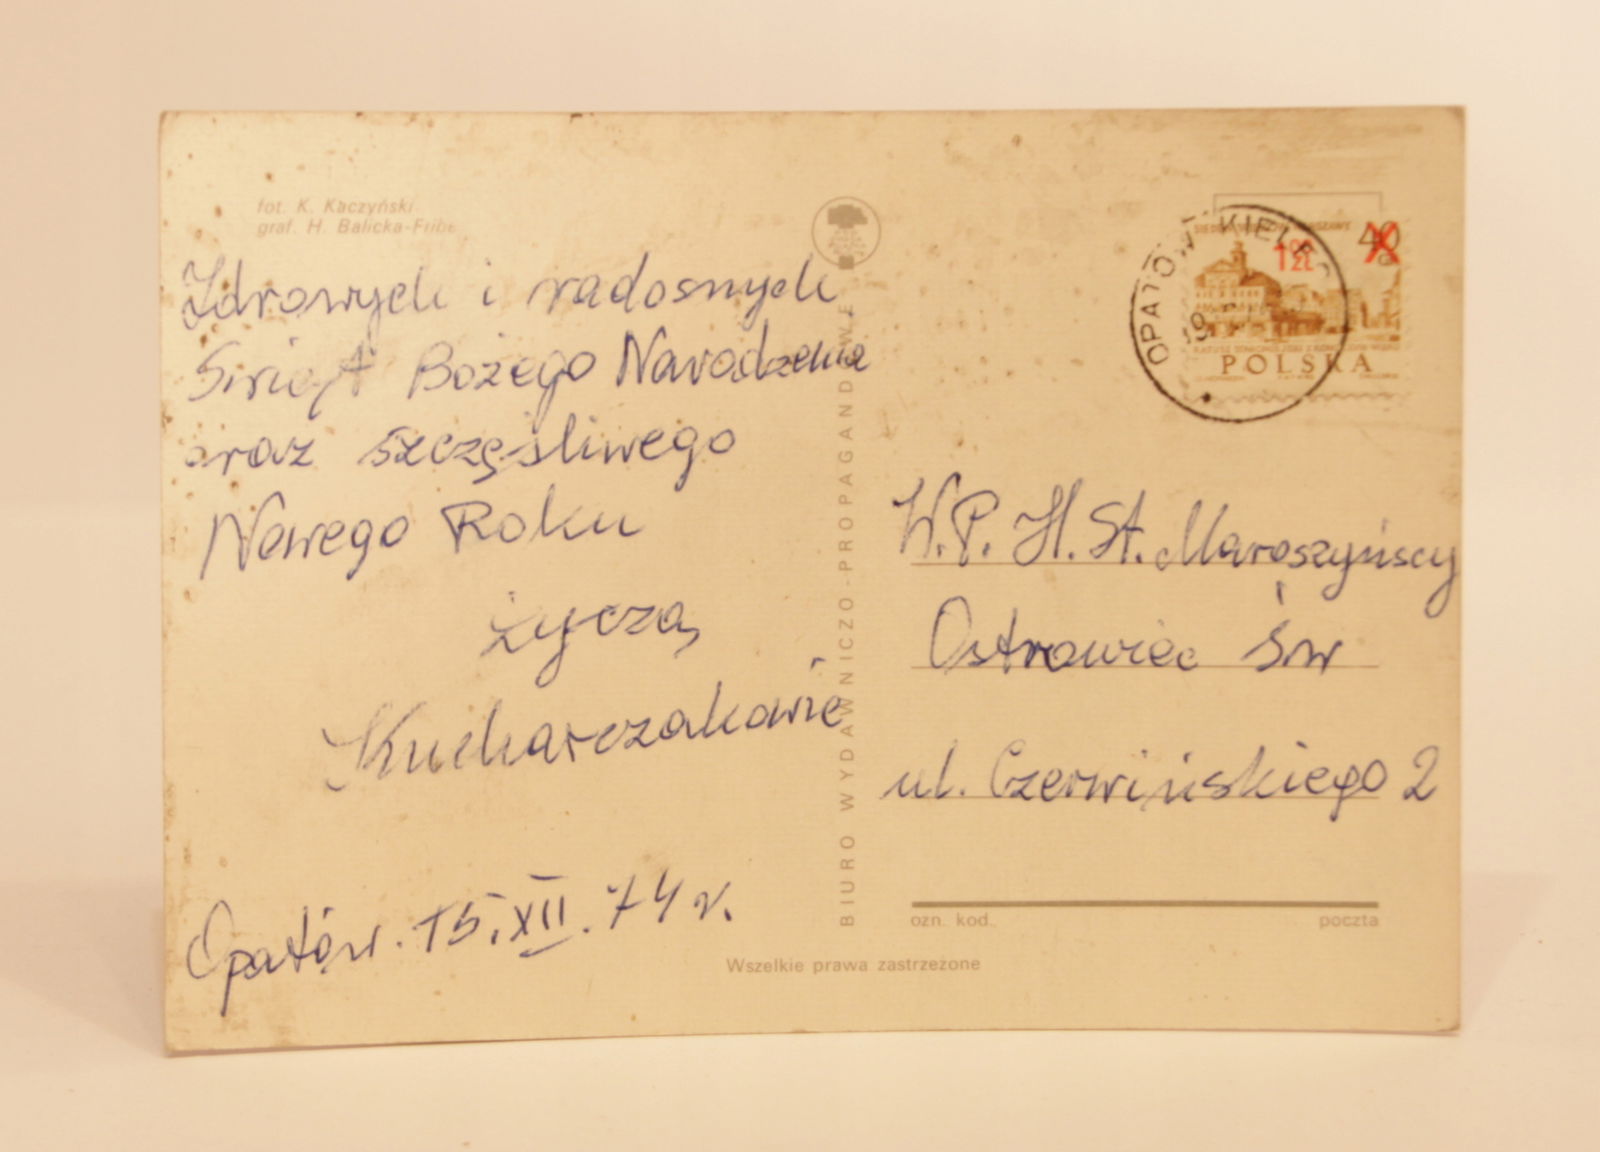 fot. K. Kaczyński
graf. H. Balicka-Fribe
Zdrowych i radosnych
Świąt Bożego Narodzenia
oraz szczęśliwego
Nowego Roku
życzą
Kucharczakowie
Opatów. 15.XII.74 r.
BIURO WYDAWNICZO-PROPAGANDOWE
Wszelkie prawa zastrzeżone
OPATÓW KIELEC
40
1zł
POLSKA
W.P. H. St. Maroszyńscy
Ostrowiec Św
ul. Czerwińskiego 2
ozn. kod. poczta